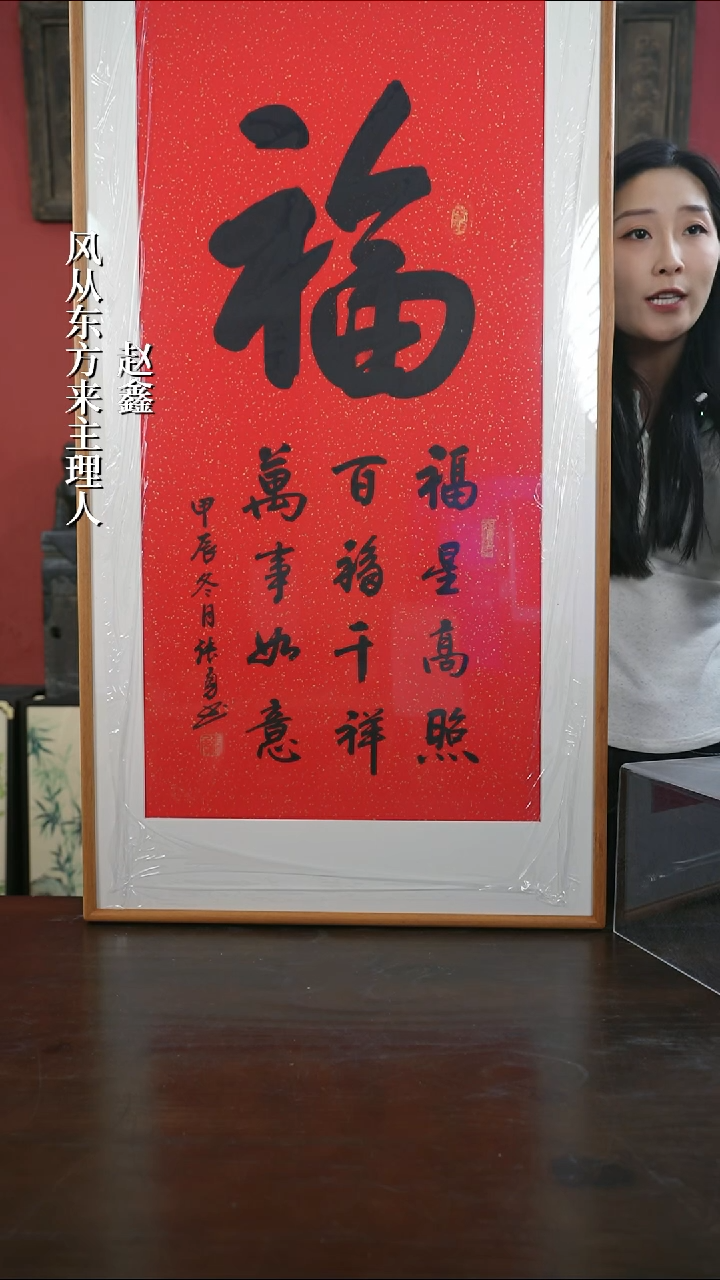 福
福星高照
百福千祥
萬事如意
甲辰冬月张勇书
赵鑫
风从东方来主理人